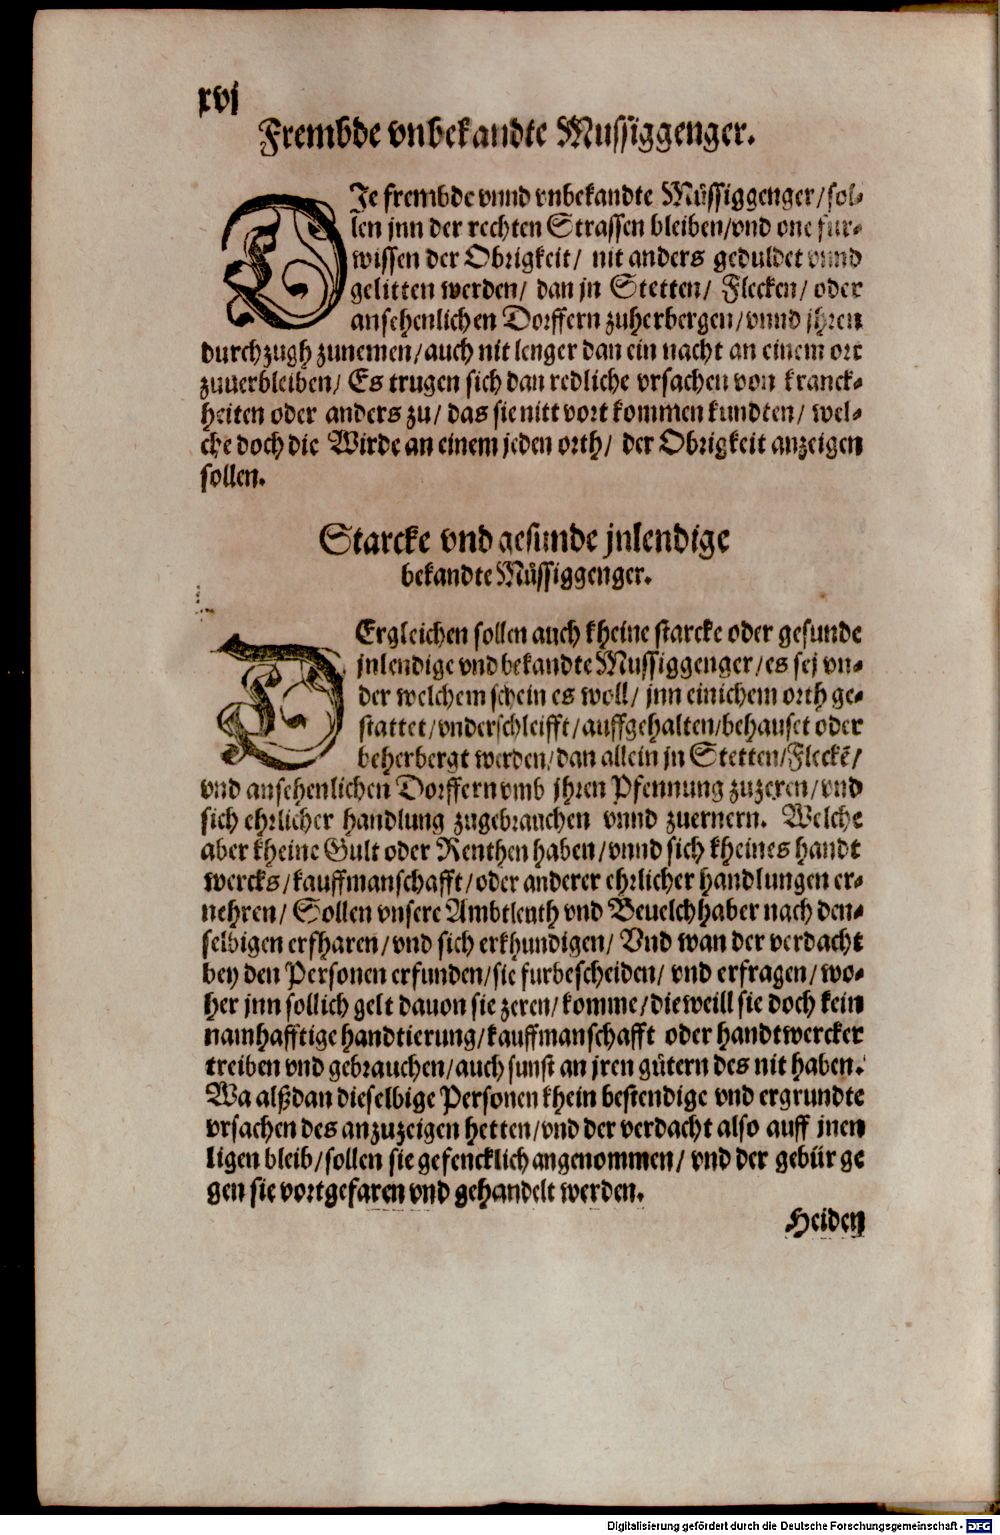 xvj
Frembde vnbekandte Mussiggenger.
DIe frembde vnnd vnbekandte Müssiggenger/sol-
len jnn der rechten Strassen bleiben/vnd one fur-
wissen der Obrigkeit/ nit anders geduldet vnnd
gelitten werden/ dan jn Stetten/ Flecken/ oder
ansehenlichen Dorffern zuherbergen/vnnd jhren
durchzugh zunemen/auch nit lenger dan ein nacht an einem ort
zuuerbleiben/ Es trugen sich dan redliche vrsachen von kranck-
heiten oder anders zu/ das sie nitt vort kommen kundten/ wel-
che doch die Wirde an einem jeden orth/ der Obrigkeit anzeigen
sollen.
Starcke vnd gesunde jnlendige
bekandte Müssiggenger.
DErgleichen sollen auch kheine starcke oder gesunde
jnlendige vnd bekandte Mussiggenger/es sej vn-
der welchem schein es woll/ jnn einichem orth ge-
stattet/vnderschleifft/auffgehalten/behauset oder
beherbergt werden/dan allein jn Stetten/Fleckẽ/
vnd ansehenlichen Dorffern vmb jhren Pfennung zuzeren/vnd
sich ehrlicher handlung zugebrauchen vnnd zuernern. Welche
aber kheine Gult oder Renthen haben/vnnd sich kheines handt
wercks/kauffmanschafft/oder anderer ehrlicher handlungen er-
nehren/ Sollen vnsere Ambtleuth vnd Beuelchhaber nach den-
selbigen erfharen/vnd sich erkhundigen/ Vnd wan der verdacht
bey den Personen erfunden/sie furbescheiden/ vnd erfragen/wo-
her jnn sollich gelt dauon sie zeren/komme/dieweill sie doch kein
namhafftige handtierung/kauffmanschafft oder handtwercker
treiben vnd gebrauchen/auch sunst an jren gütern des nit haben.
Wa alßdan dieselbige Personen khein bestendige vnd ergrundte
vrsachen des anzuzeigen hetten/vnd der verdacht also auff jnen
ligen bleib/sollen sie gefencklich angenommen/ vnd der gebür ge
gen sie vortgefaren vnd gehandelt werden.
Heiden
Digitalisierung gefördert durch die Deutsche Forschungsgemeinschaft - DFG